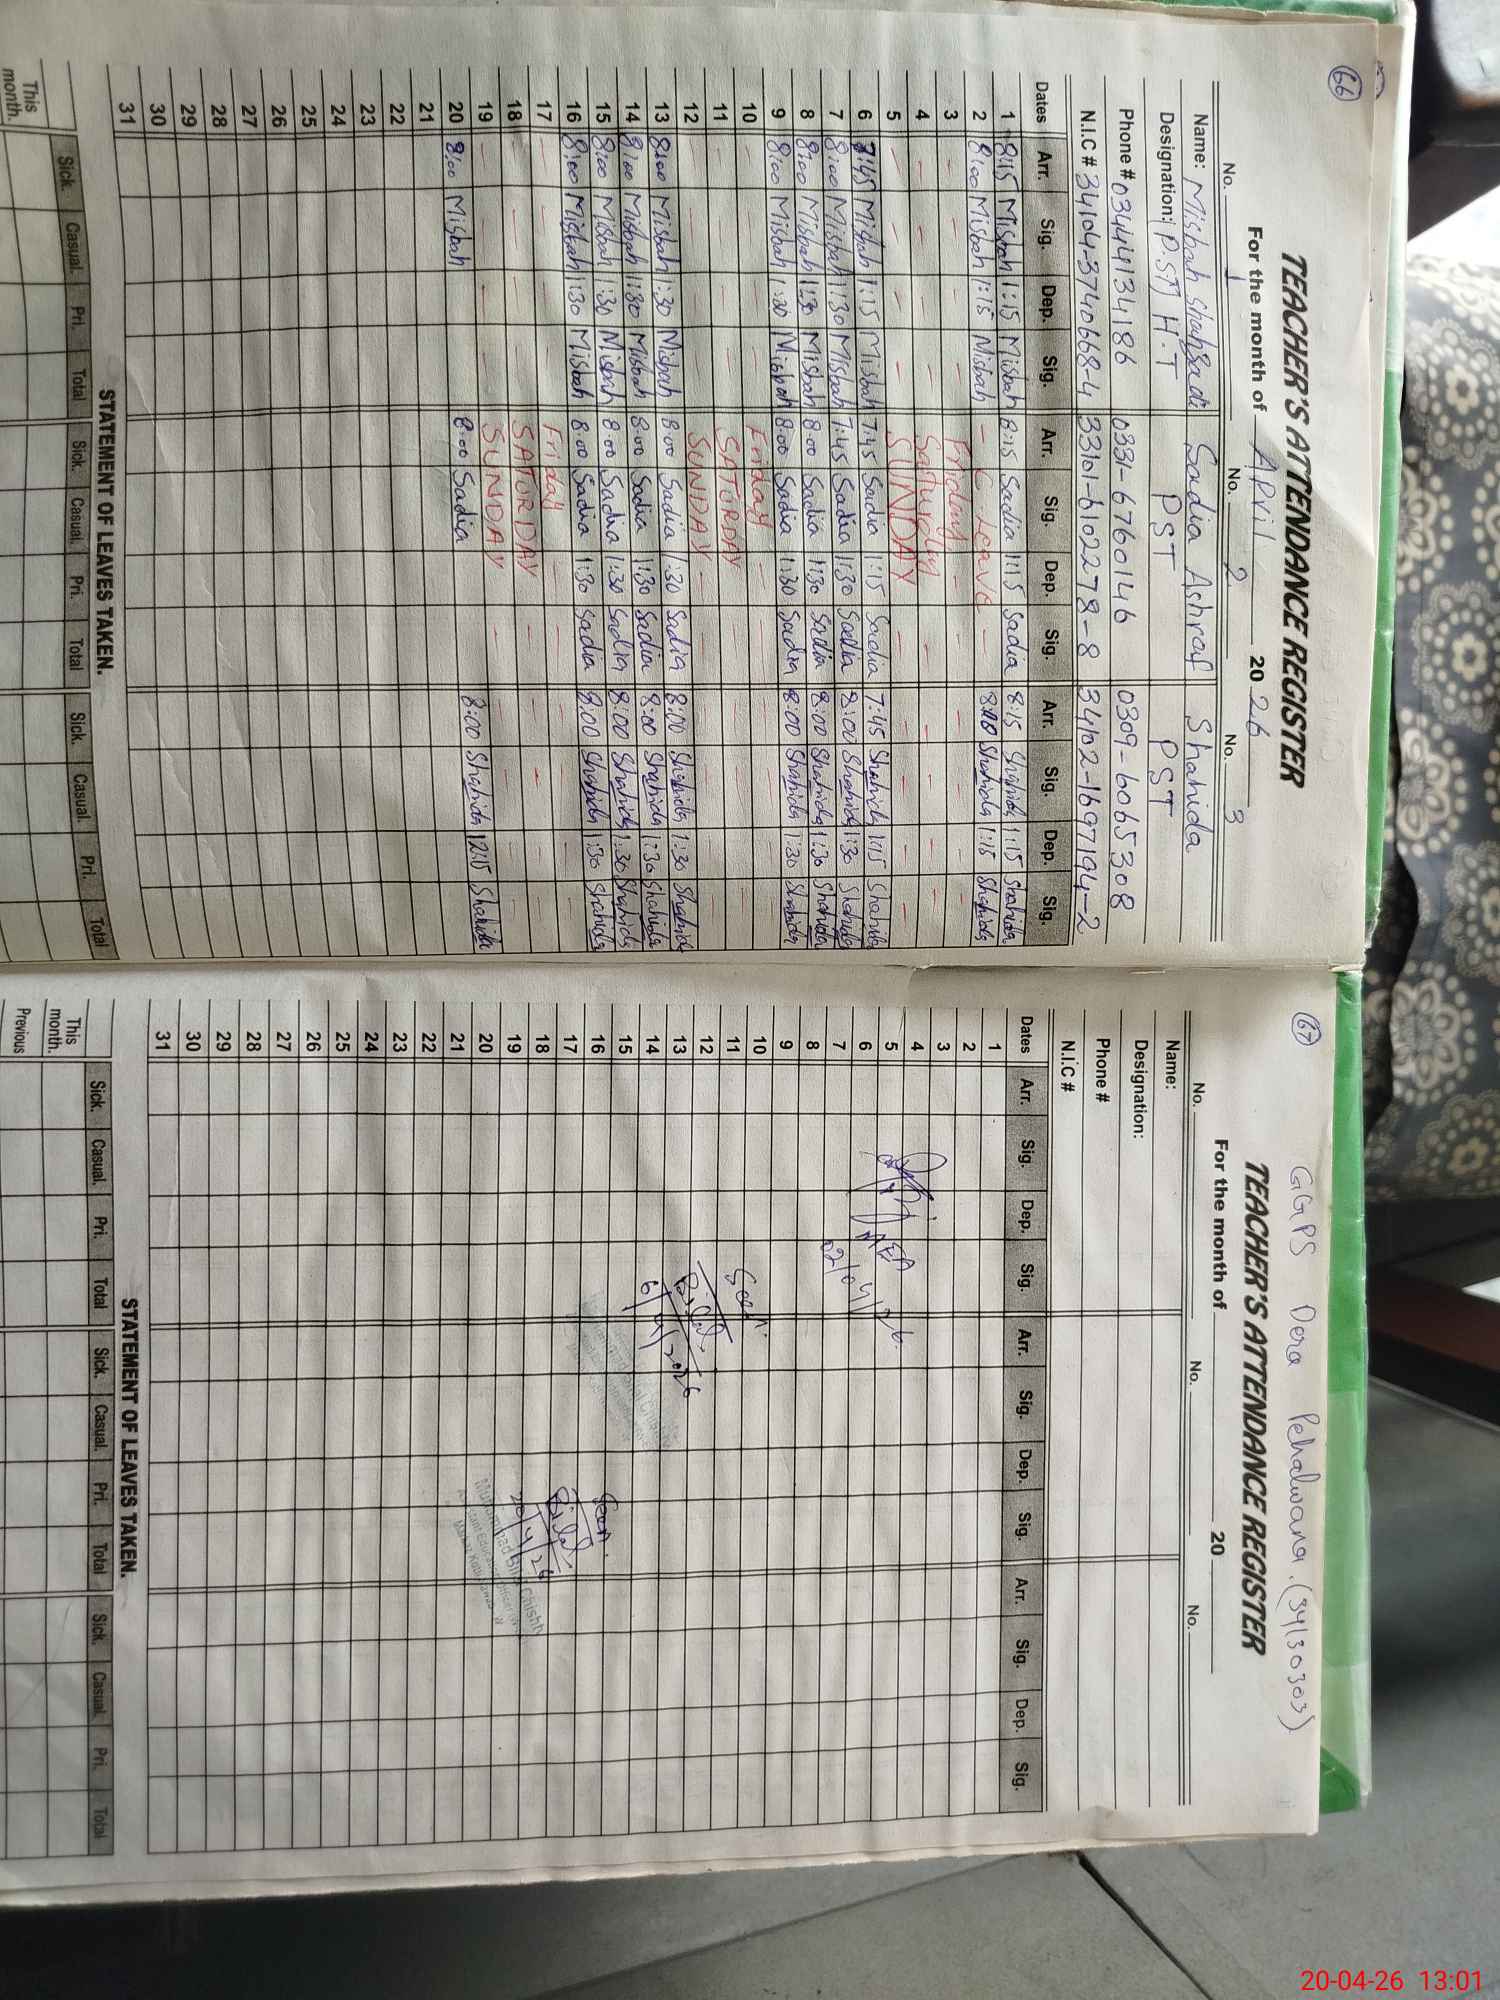 66
TEACHER'S ATTENDANCE REGISTER
For the month of April 2026
No. 1 No. 2 No. 3
Name: Misbah Shahzadi Sadia Ashraf Shahida
Designation: P.S.T H.T PST PST
Phone # 03444134186 0331-6760146 0309-6065308
N.I.C # 34104-3740668-4 33101-6102278-8 34102-1697194-2
Dates Arr. Sig. Dep. Sig. Arr. Sig. Dep. Sig. Arr. Sig. Dep. Sig.
1 8:15 Misbah 1:15 Misbah 8:15 Sadia 1:15 Sadia 8:15 Shahida 1:15 Shahida
2 8:00 Misbah 1:15 Misbah - C Leave - Shahida 1:15 Shahida
3 Friday
4 Saturday
5 SUNDAY
6 7:45 Misbah 1:15 Misbah 7:45 Sadia 1:15 Sadia 7:45 Shahida 1:15 Shahida
7 8:00 Misbah 1:30 Misbah 7:45 Sadia 1:30 Sadia 8:00 Shahida 1:30 Shahida
8 8:00 Misbah 1:30 Misbah 8:00 Sadia 1:30 Sadia 8:00 Shahida 1:30 Shahida
9 8:00 Misbah 1:30 Misbah 8:00 Sadia 1:30 Sadia 8:00 Shahida 1:30 Shahida
10 Friday
11 SATURDAY
12 SUNDAY
13 8:00 Misbah 1:30 Misbah 8:00 Sadia 1:30 Sadia 8:00 Shahida 1:30 Shahida
14 8:00 Misbah 1:30 Misbah 8:00 Sadia 1:30 Sadia 8:00 Shahida 1:30 Shahida
15 8:00 Misbah 1:30 Misbah 8:00 Sadia 1:30 Sadia 8:00 Shahida 1:30 Shahida
16 8:00 Misbah 1:30 Misbah 8:00 Sadia 1:30 Sadia 8:00 Shahida 1:30 Shahida
17 Friday
18 SATURDAY
19 SUNDAY
20 8:00 Misbah 8:00 Sadia 8:00 Shahida 12:15 Shahida
21
22
23
24
25
26
27
28
29
30
31
STATEMENT OF LEAVES TAKEN.
Sick. Casual. Pri. Total Sick. Casual. Pri. Total Sick. Casual. Pri. Total
This month.
67
GGPS Dera Pehalwana. (34130303)
TEACHER'S ATTENDANCE REGISTER
For the month of 20
No. No. No.
Name:
Designation:
Phone #
N.I.C #
Dates Arr. Sig. Dep. Sig. Arr. Sig. Dep. Sig. Arr. Sig. Dep. Sig.
1
2
3
4
5
6
AEO
7
02/04/26
8
9
10
11
Seen.
12
13
Bilal
14
6/4/2026
15
16
Seen.
17
Bilal
18
20/4/26
19
Muhammad Bilal Chishti
20
21
22
23
24
25
26
27
28
29
30
31
STATEMENT OF LEAVES TAKEN.
Sick. Casual. Pri. Total Sick. Casual. Pri. Total Sick. Casual. Pri. Total
This month.
Previous
20-04-26 13:01